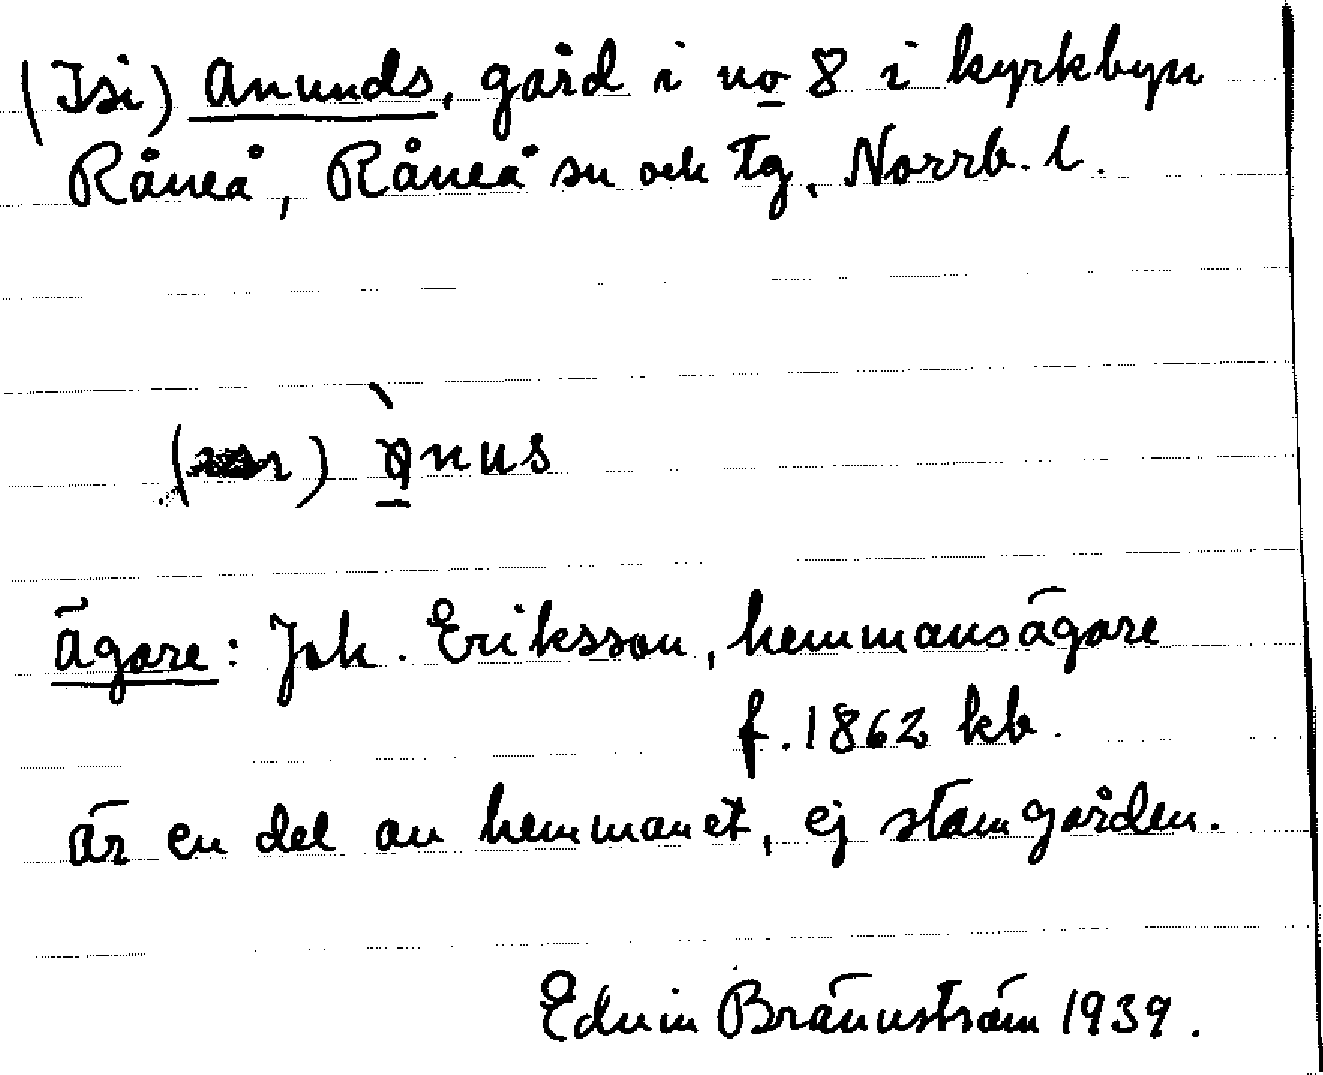 (Isi) Anunds, gård i no 8 i kyrkbyn
Råneå, Råneå sn och tg, Norrb. l.
nus
Ägare: Joh. Eriksson, hemmansägare
f. 1862 kb.
är en del av hemmanet, ej stamgården.
Edvin Brännström 1939.